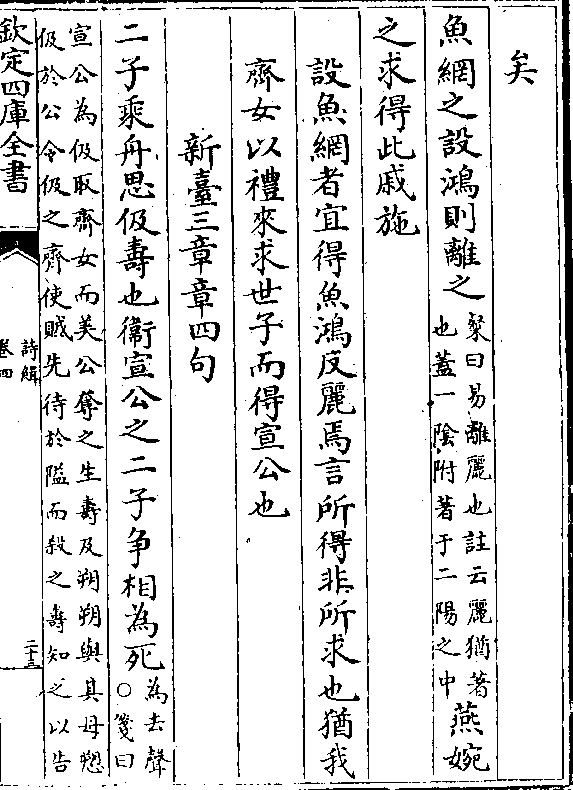 矣
魚網之設鴻則離之
粲曰易離麗也註云麗猶著
也蓋一陰附著于二陽之中
燕婉
之求得此戚施
設魚網者宜得魚鴻反麗焉言所得非所求也猶我
齊女以禮來求世子而得宣公也
新臺三章章四句
二子乘舟思伋壽也衞宣公之二子争相為死
為去聲
○箋曰
宣公為伋取齊女而美公奪之生壽及朔朔與其母愬
伋於公公令伋之齊使賊先待於隘而殺之壽知之以告
欽定四庫全書
詩緝
卷四
二十三